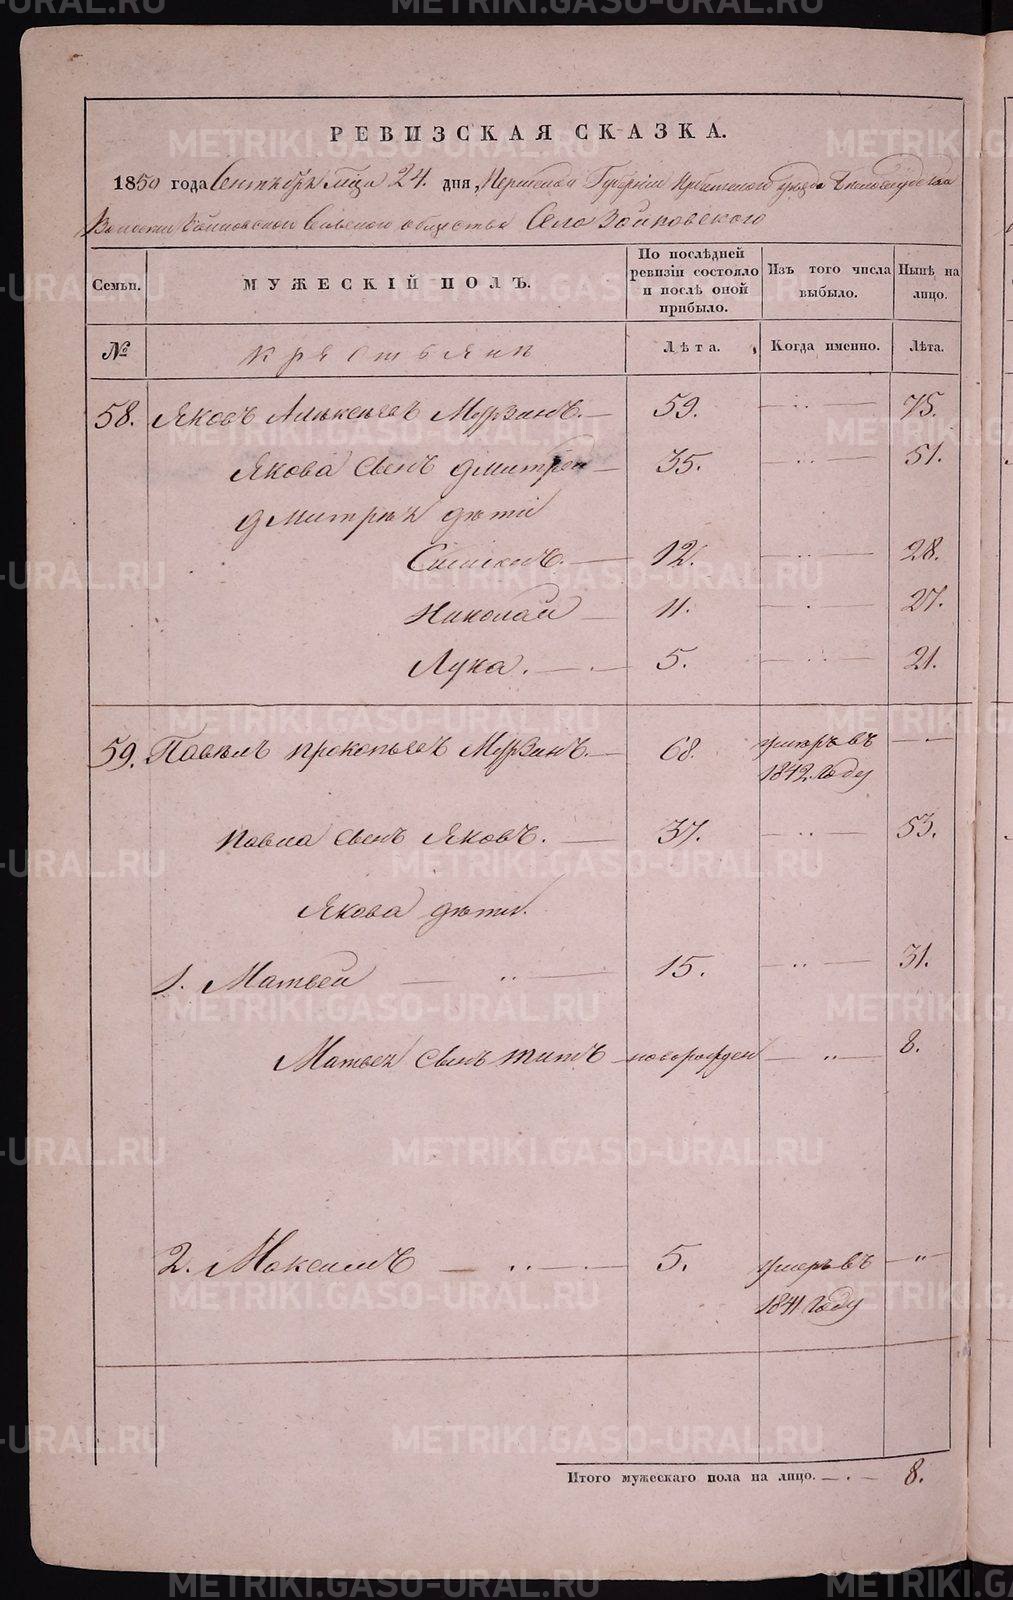 РЕВИЗСКАЯ СКАЗКА.
1850 года Сентября м́ца 24. дня, Пермской Губернии Ирбитского уезда Белослудской
Волости Зайковской Сельского общества Село Зайковского
Семьи.
МУЖЕСКІЙ ПОЛЪ.
По послѣдней ревизіи состояло и послѣ оной прибыло.
Изъ того числа выбыло.
Нынѣ на лицо.
№
крестьяне
Лѣта.
Когда именно.
Лѣта.
58. Яковъ Алексеевъ Мурзинъ. 59. 75.
Якова сынъ Дмитрей 35. 51.
Дмитрея дети
12. 28.
Николай 11. 27.
Лука. 5. 21.
59. Павелъ Прокопьевъ Мурзинъ. 68. умеръ въ 1842 году
Павла сынъ Яковъ. 37. 53.
Якова дети.
1. Матвей 15. 31.
Матвея сынъ Титъ новорожден 8.
2. Максимъ 5. умеръ въ 1841 году
Итого мужескаго пола на лицо. 8.
METRIKI.GASO-URAL.RU